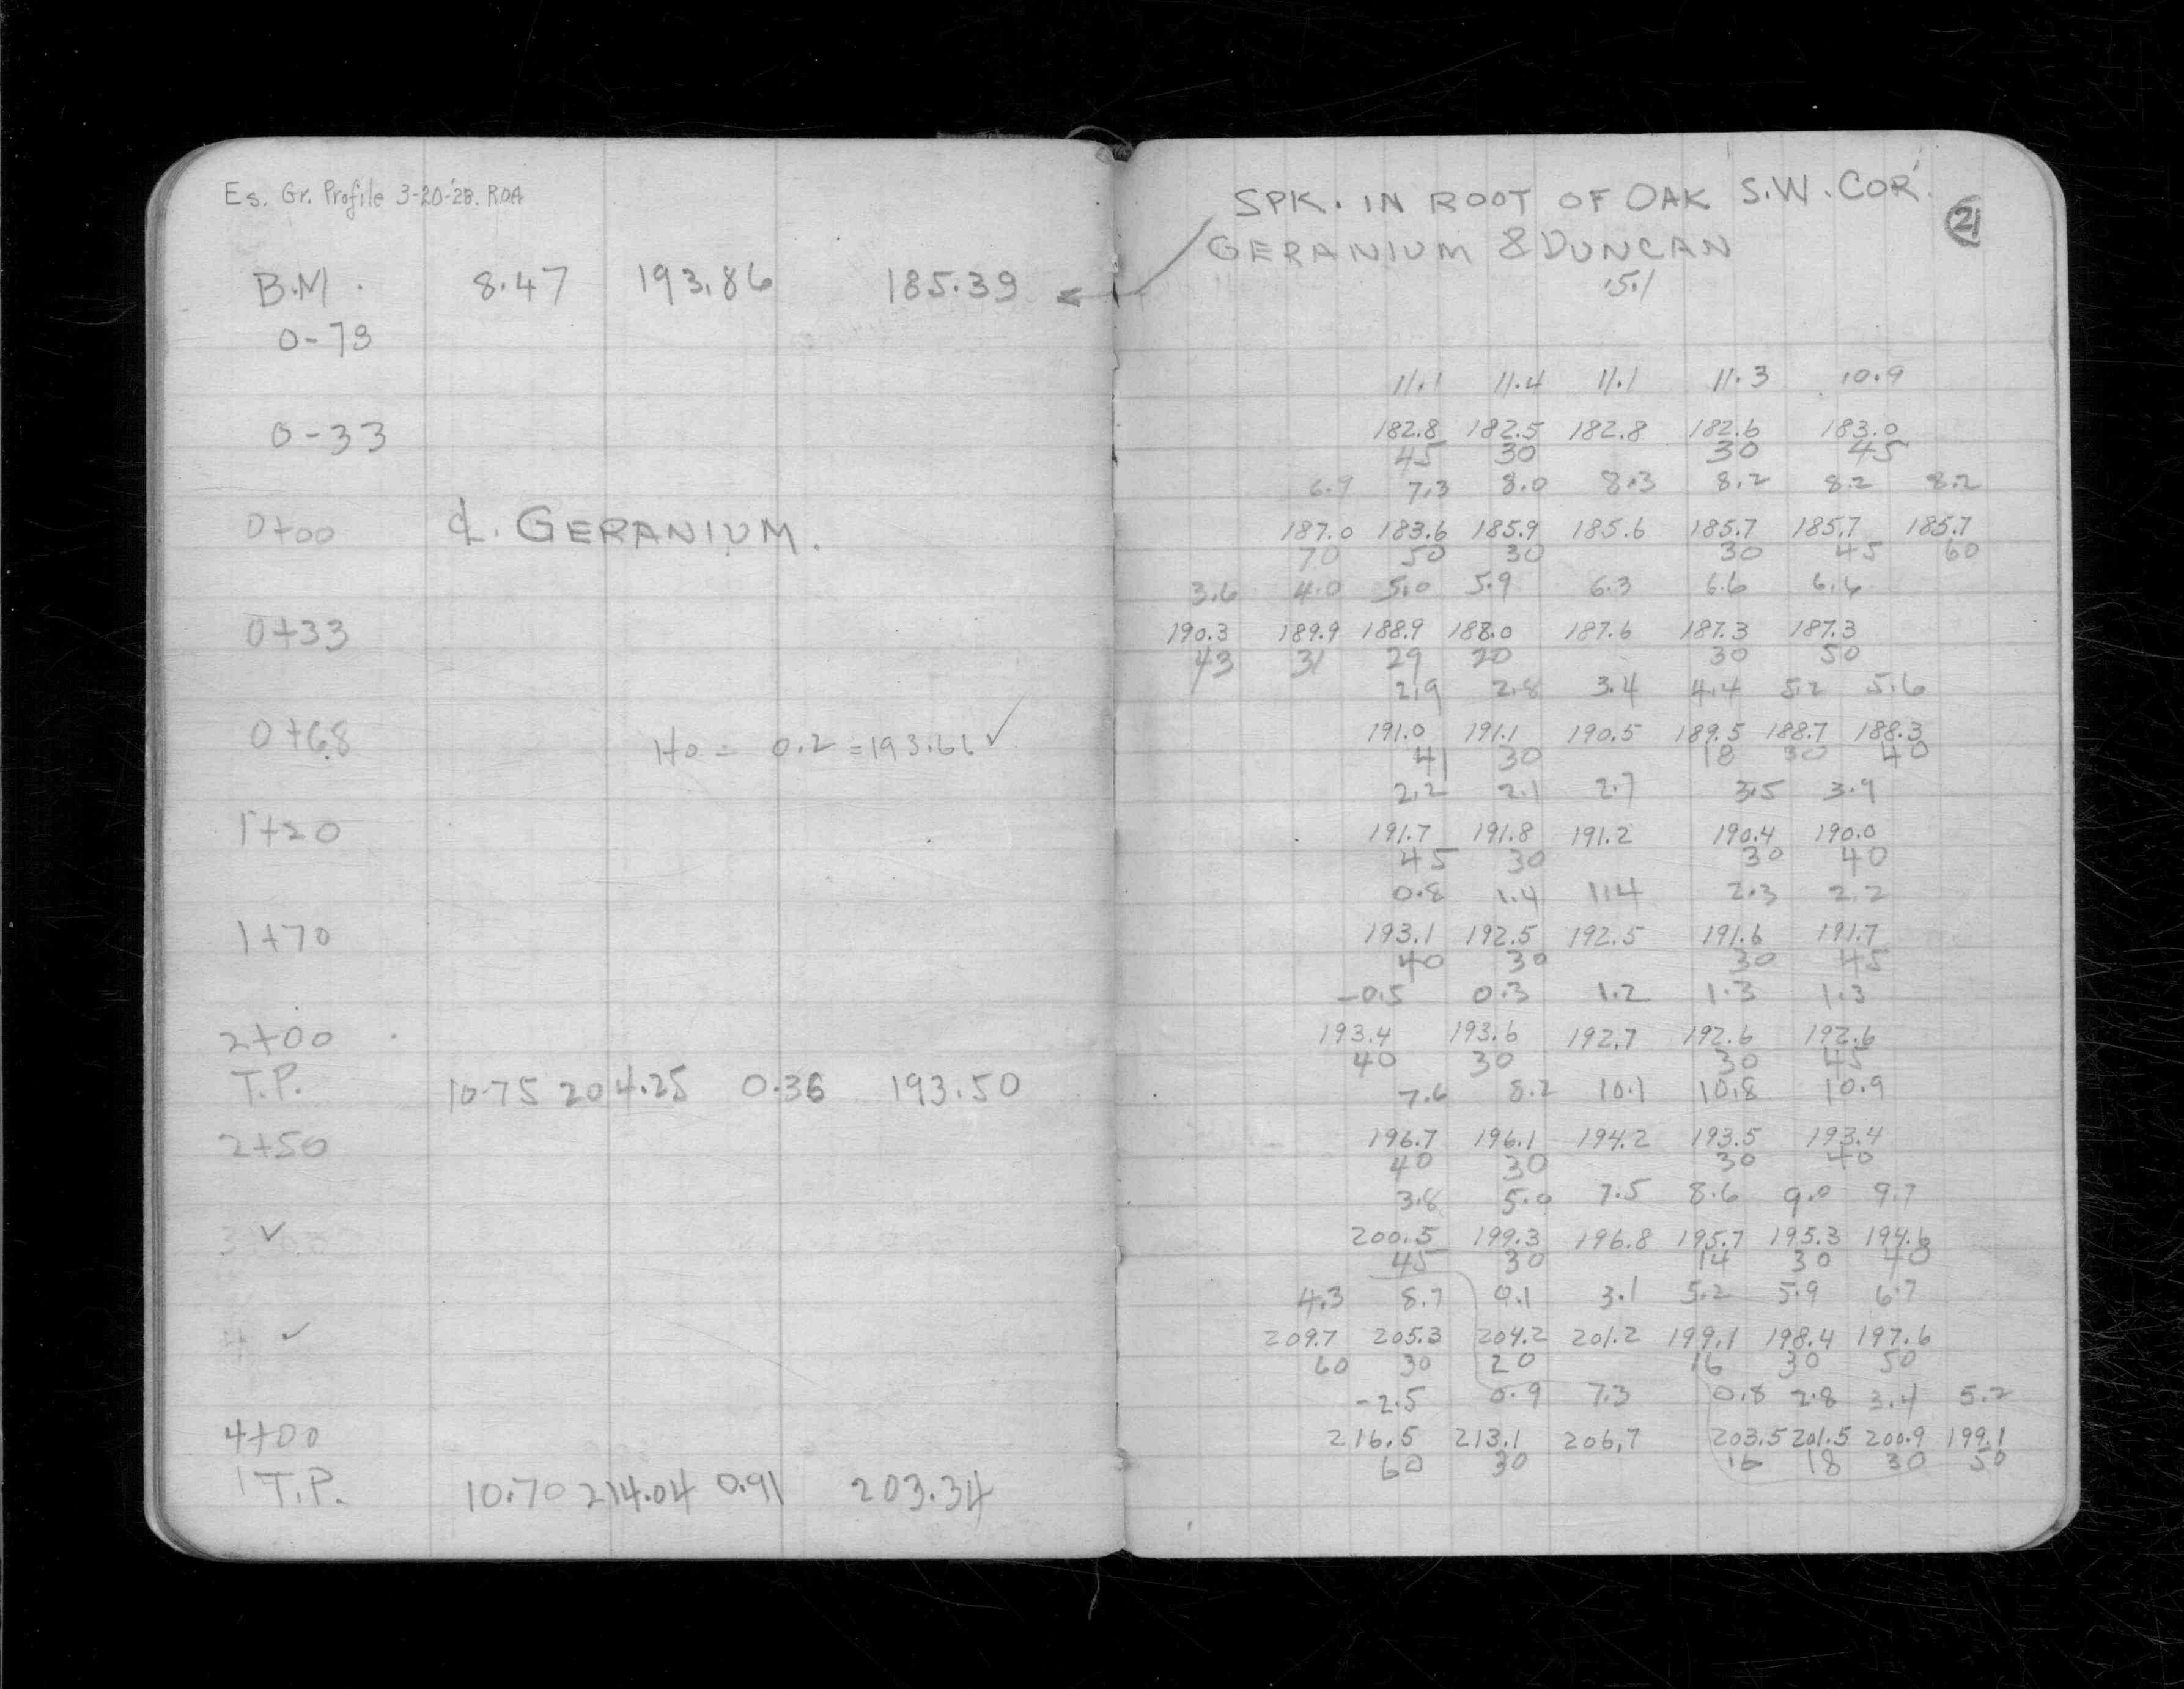 Es. Gr. Profile 3-20-'28. ROA
B.M. 8.47 193.86 185.39
0-79
0-33
0+00 ℄. GERANIUM.
0+33
0+68 Ho = 0.2 = 193.66 ✓
1+20
1+70
2+00
T.P. 10.75 204.25 0.36 193.50
2+50
✓
✓
4+00
T.P. 10.70 214.04 0.91 203.34
SPK. IN ROOT OF OAK S.W. COR.
21
GERANIUM & DUNCAN
15.1
11.1 11.4 11.1 11.3 10.9
182.8 182.5 182.8 182.6 183.0
45 30 30 45
6.9 7.3 8.0 8.3 8.2 8.2 8.2
187.0 183.6 185.9 185.6 185.7 185.7 185.7
70 50 30 30 45 60
3.6 4.0 5.0 5.9 6.3 6.6 6.6
190.3 189.9 188.9 188.0 187.6 187.3 187.3
43 31 29 20 30 50
2.9 2.8 3.4 4.4 5.2 5.6
191.0 191.1 190.5 189.5 188.7 188.3
41 30 18 30 40
2.2 2.1 2.7 3.5 3.9
191.7 191.8 191.2 190.4 190.0
45 30 30 40
0.8 1.4 1.4 2.3 2.2
193.1 192.5 192.5 191.6 191.7
40 30 30 45
-0.5 0.3 1.2 1.3 1.3
193.4 193.6 192.7 192.6 192.6
40 30 30 45
7.6 8.2 10.1 10.8 10.9
196.7 196.1 194.2 193.5 193.4
40 30 30 40
3.8 5.0 7.5 8.6 9.0 9.7
200.5 199.3 196.8 195.7 195.3 194.6
45 30 14 30 40
4.3 8.7 0.1 3.1 5.2 5.9 6.7
209.7 205.3 204.2 201.2 199.1 198.4 197.6
60 30 20 16 30 50
-2.5 0.9 7.3 0.8 2.8 3.4 5.2
216.5 213.1 206.7 203.5 201.5 200.9 199.1
60 30 16 18 30 50